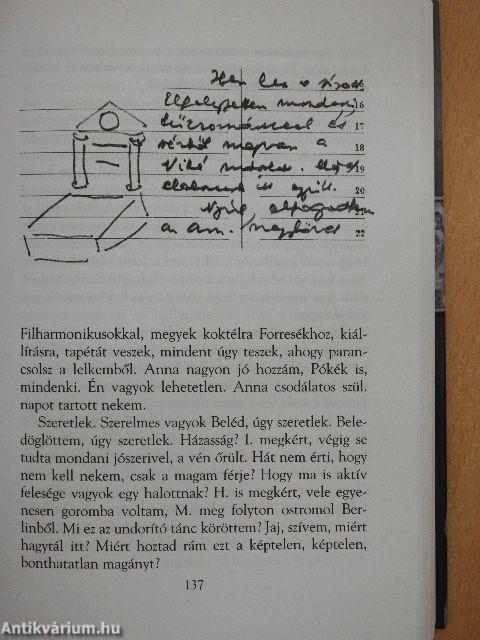 Hen lesz a sírod
15
16
mondani
17
és
megvan a
18
19
20
21
22
Filharmonikusokkal, megyek koktélra Forresékhoz, kiál-
lításra, tapétát veszek, mindent úgy teszek, ahogy paran-
csolsz a lelkemből. Anna nagyon jó hozzám, Pókék is,
mindenki. Én vagyok lehetetlen. Anna csodálatos szül.
napot tartott nekem.
Szeretlek. Szerelmes vagyok Beléd, úgy szeretlek. Bele-
döglöttem, úgy szeretlek. Házasság? I. megkért, végig se
tudta mondani jószerivel, a vén őrült. Hát nem érti, hogy
nem kell nekem, csak a magam férje? Hogy ma is aktív
felesége vagyok egy halottnak? H. is megkért, vele egye-
nesen goromba voltam, M. meg folyton ostromol Ber-
linből. Mi ez az undorító tánc köröttem? Jaj, szívem, miért
hagytál itt? Miért hoztad rám ezt a képtelen, képtelen,
bonthatatlan magányt?
137
Antikvárium.hu